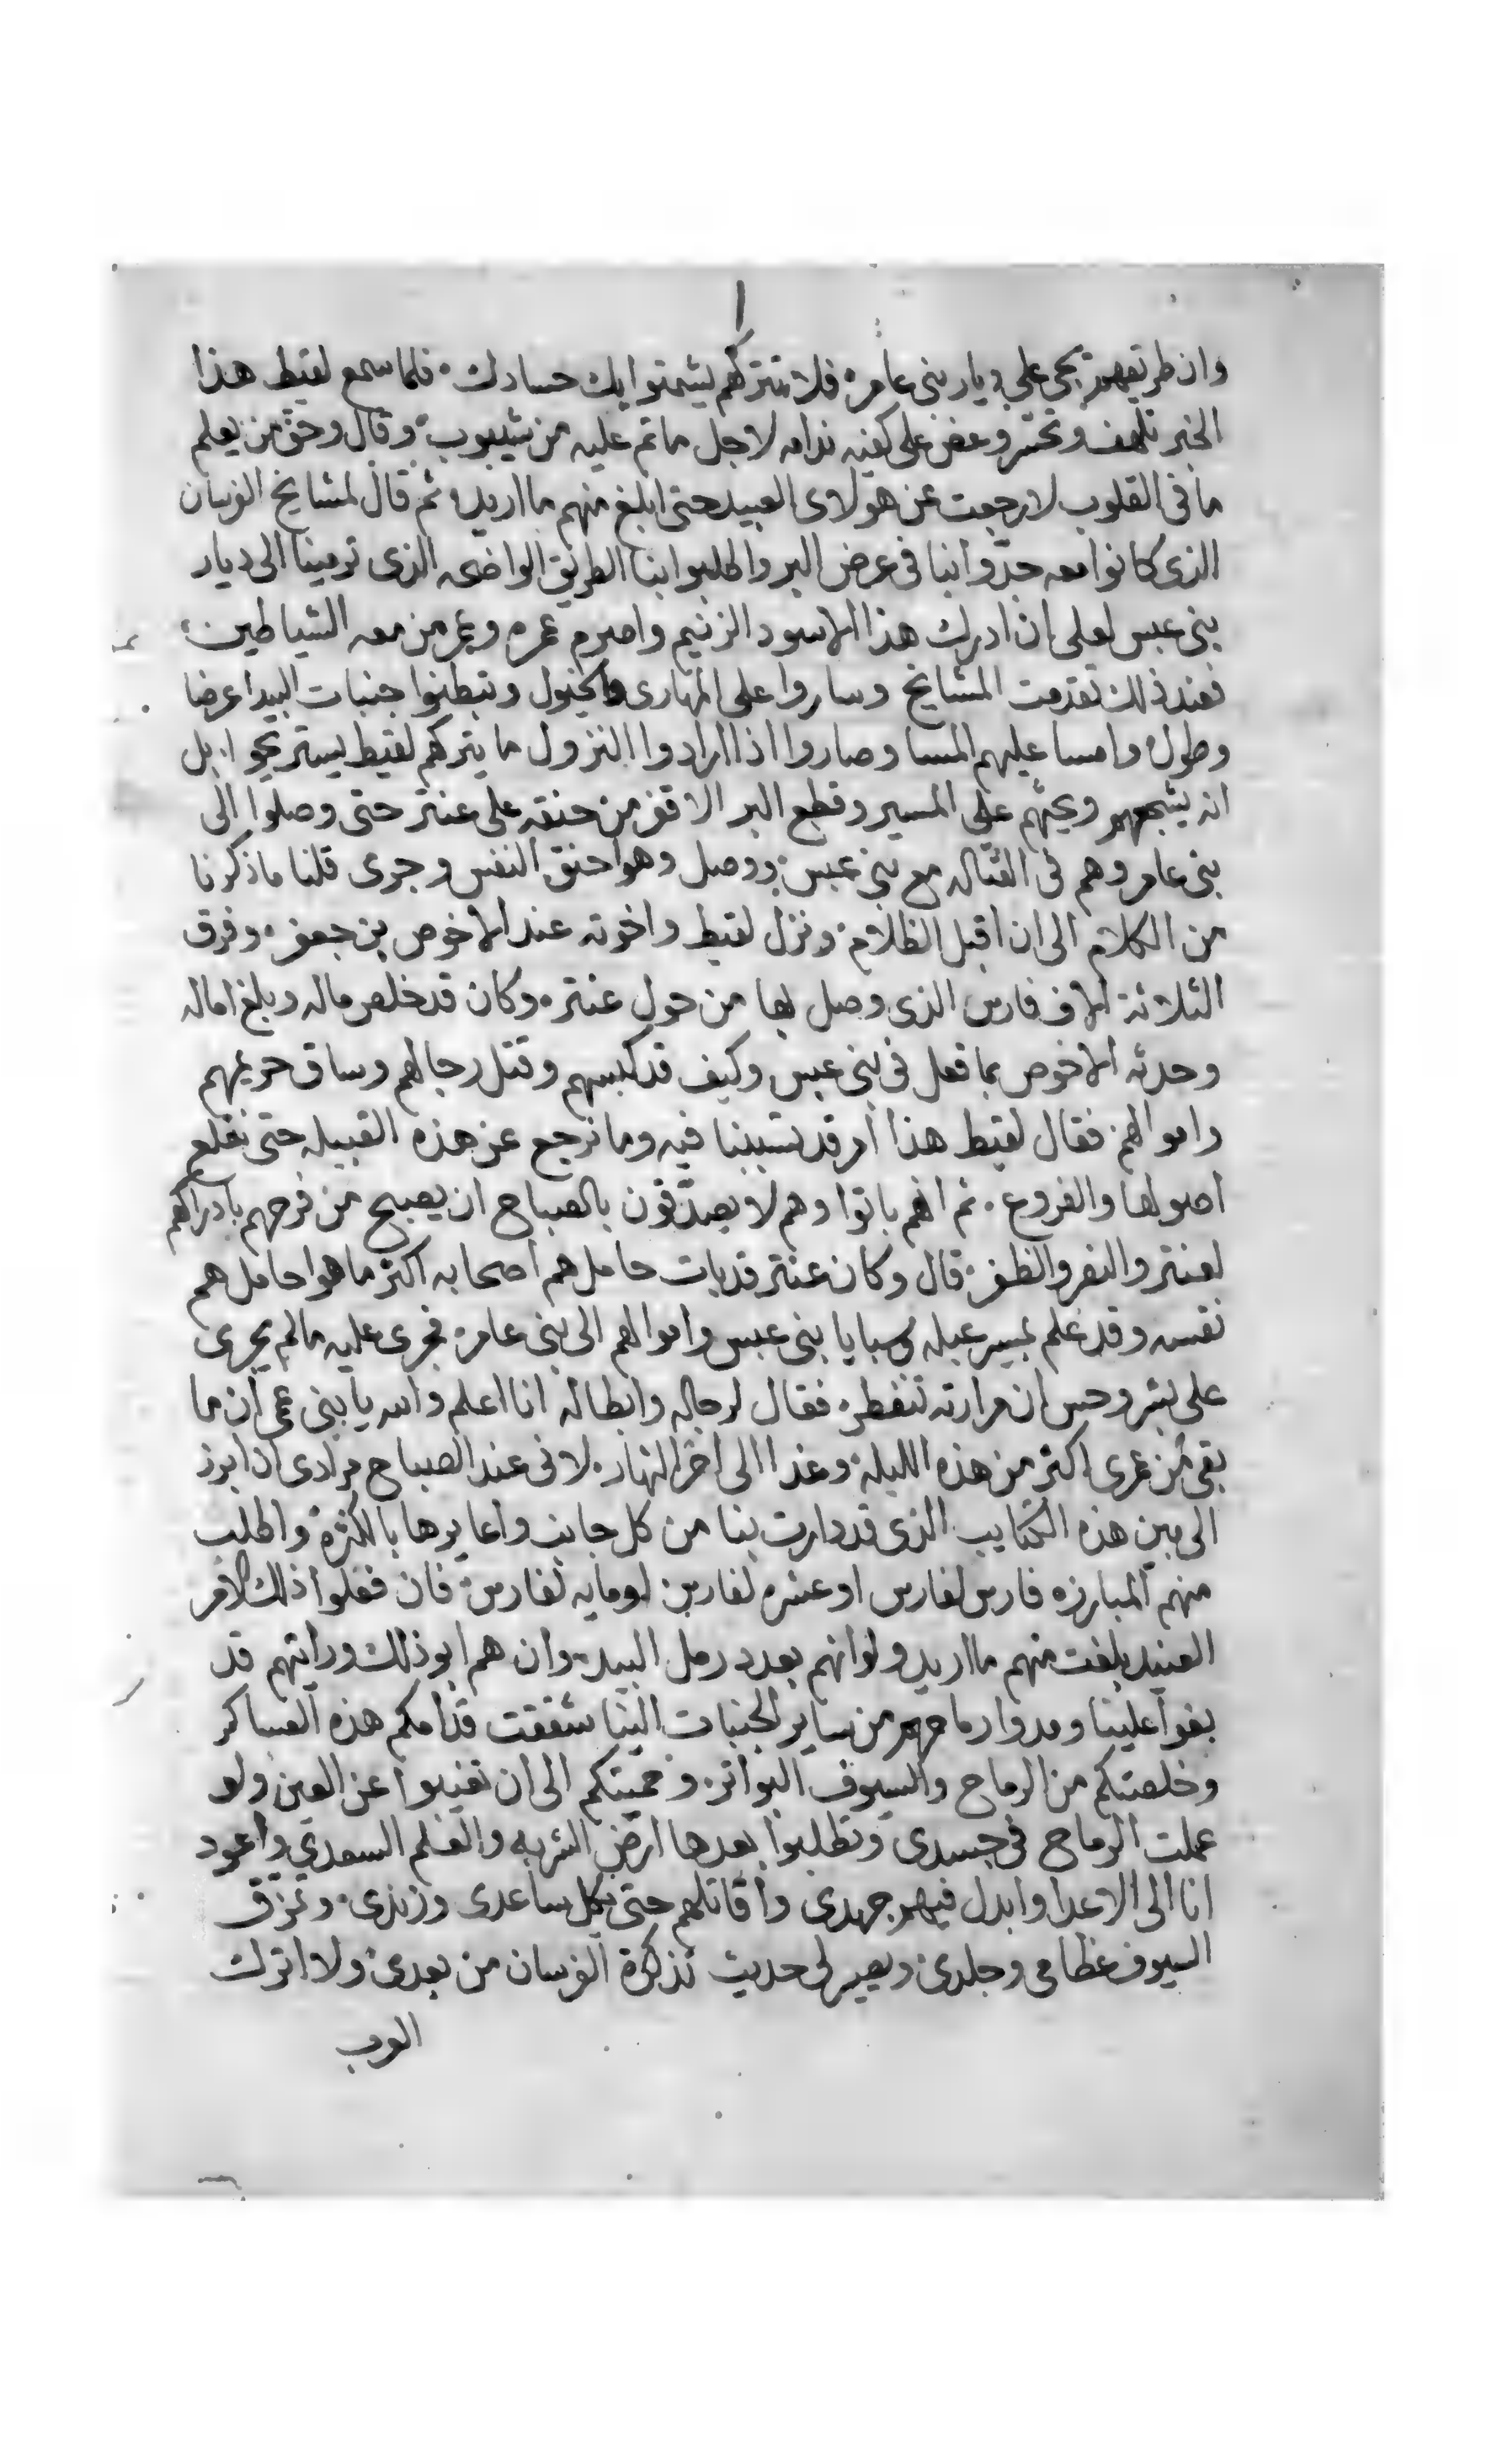 ١
وان طريقهم تجى على ديار بنى عامر، فلا تتركهم يشمتوا بك حسادك، فلما سمع لقيط هذا
الخبر تلهف وتحسر وعض على كفيه ندامه لاجل ما تم عليه من شيبوب، وقال وحق من يعلم
ما فى القلوب لا رجعت عن هولاى العبيد حتى ابلغ منهم ما اريد، ثم قال لمشايخ الفرسان
الذى كانوا معه جدّوا بنا فى عرض البر واطلبوا بنا الطريق الواضحه الذى ترمينا الى ديار
بنى عبس لعلى ان ادرك هذا الاسود الزنيم واصرم عمره وعمر من معه الشياطين،
فعند ذلك تقدمت المشايخ وساروا على المهارى والخيول وتبطنوا جنبات البيدا عرضا
وطول، وامسا عليهم المسا وصاروا اذا ارادوا النزول ما يتركهم لقيط يستريحوا، بل
انه يشجعهم ويحثهم على المسير وقطع البر الاقفر من حنقه على عنتر حتى وصلوا الى
بنى عامر وهم فى القتال مع بنى عبس، ووصل وهو احنق النفس وجرى قلنا ما ذكرنا
من الكلام الى ان اقبل الظلام، ونزل لقيط واخوته عند الاخوص بن جعفر، وفرق
الثلاثة الاف فارس الذى وصل بها من حول عنتر، وكان قد خلص ماله وبلغ اماله
وحدثه الاخوص بما فعل فى بنى عبس وكيف قد كبسهم وقتل رجالهم وساق حريمهم
واموالهم، فقال لقيط هذا امر قد نشبنا فيه وما نرجع عن هذه القبيله حتى نقلع
اصولها والفروع، ثم انهم باتوا وهم لا يصدّقون بالصباح ان يصبح من فرحهم بادراكهم
لعنتر والنصر والظفر، قال وكان عنتر قد بات حامل هم اصحابه اكثر ما هوا حامل هم
نفسه وقد علم بمسير عبله وسبايا بنى عبس واموالهم الى بنى عامر، فجرى عليه مالم يجرى
على بشر وحس ان مرارته تنفطر، فقال لرجاله وابطاله انا اعلم والله يا بنى عمى ان ما
بقى من عمرى اكثر من هذه الليله وغدا الى اخر النهار، لانى عند الصباح مرادى ان ابرز
الى بين هذه الكتايب الذى قد دارت بنا من كل جانب واعايرها بالكثرة واطلب
منهم المبارزه فارس لفارس او عشره لفارس او مايه لفارس، فان فعلوا ذلك الامر
العنيد بلغت منهم ما اريد ولو انهم بعدد رمل البيد، وان هم ابو ذلك ورايتهم قد
بغوا علينا ومدوا رماحهم من ساير الجنبات الينا شققت قدامكم هذه العساكر
وخلصتكم من الرماح والسيوف البواتر، وحميتكم الى ان تغيبوا عن العين ولو
عملت الرماح فى جسدى وتطلبوا بعدها ارض الشربه والعلم السعدي واعود
انا الى الاعدا وابدل فيهم جهدى واقاتلهم حتى يكل ساعدى وزندى، وتمزّق
السيوف عظامى وجلدى، ويصير لى حديث تذكرة الفرسان من بعدى، ولا اترك
العرب